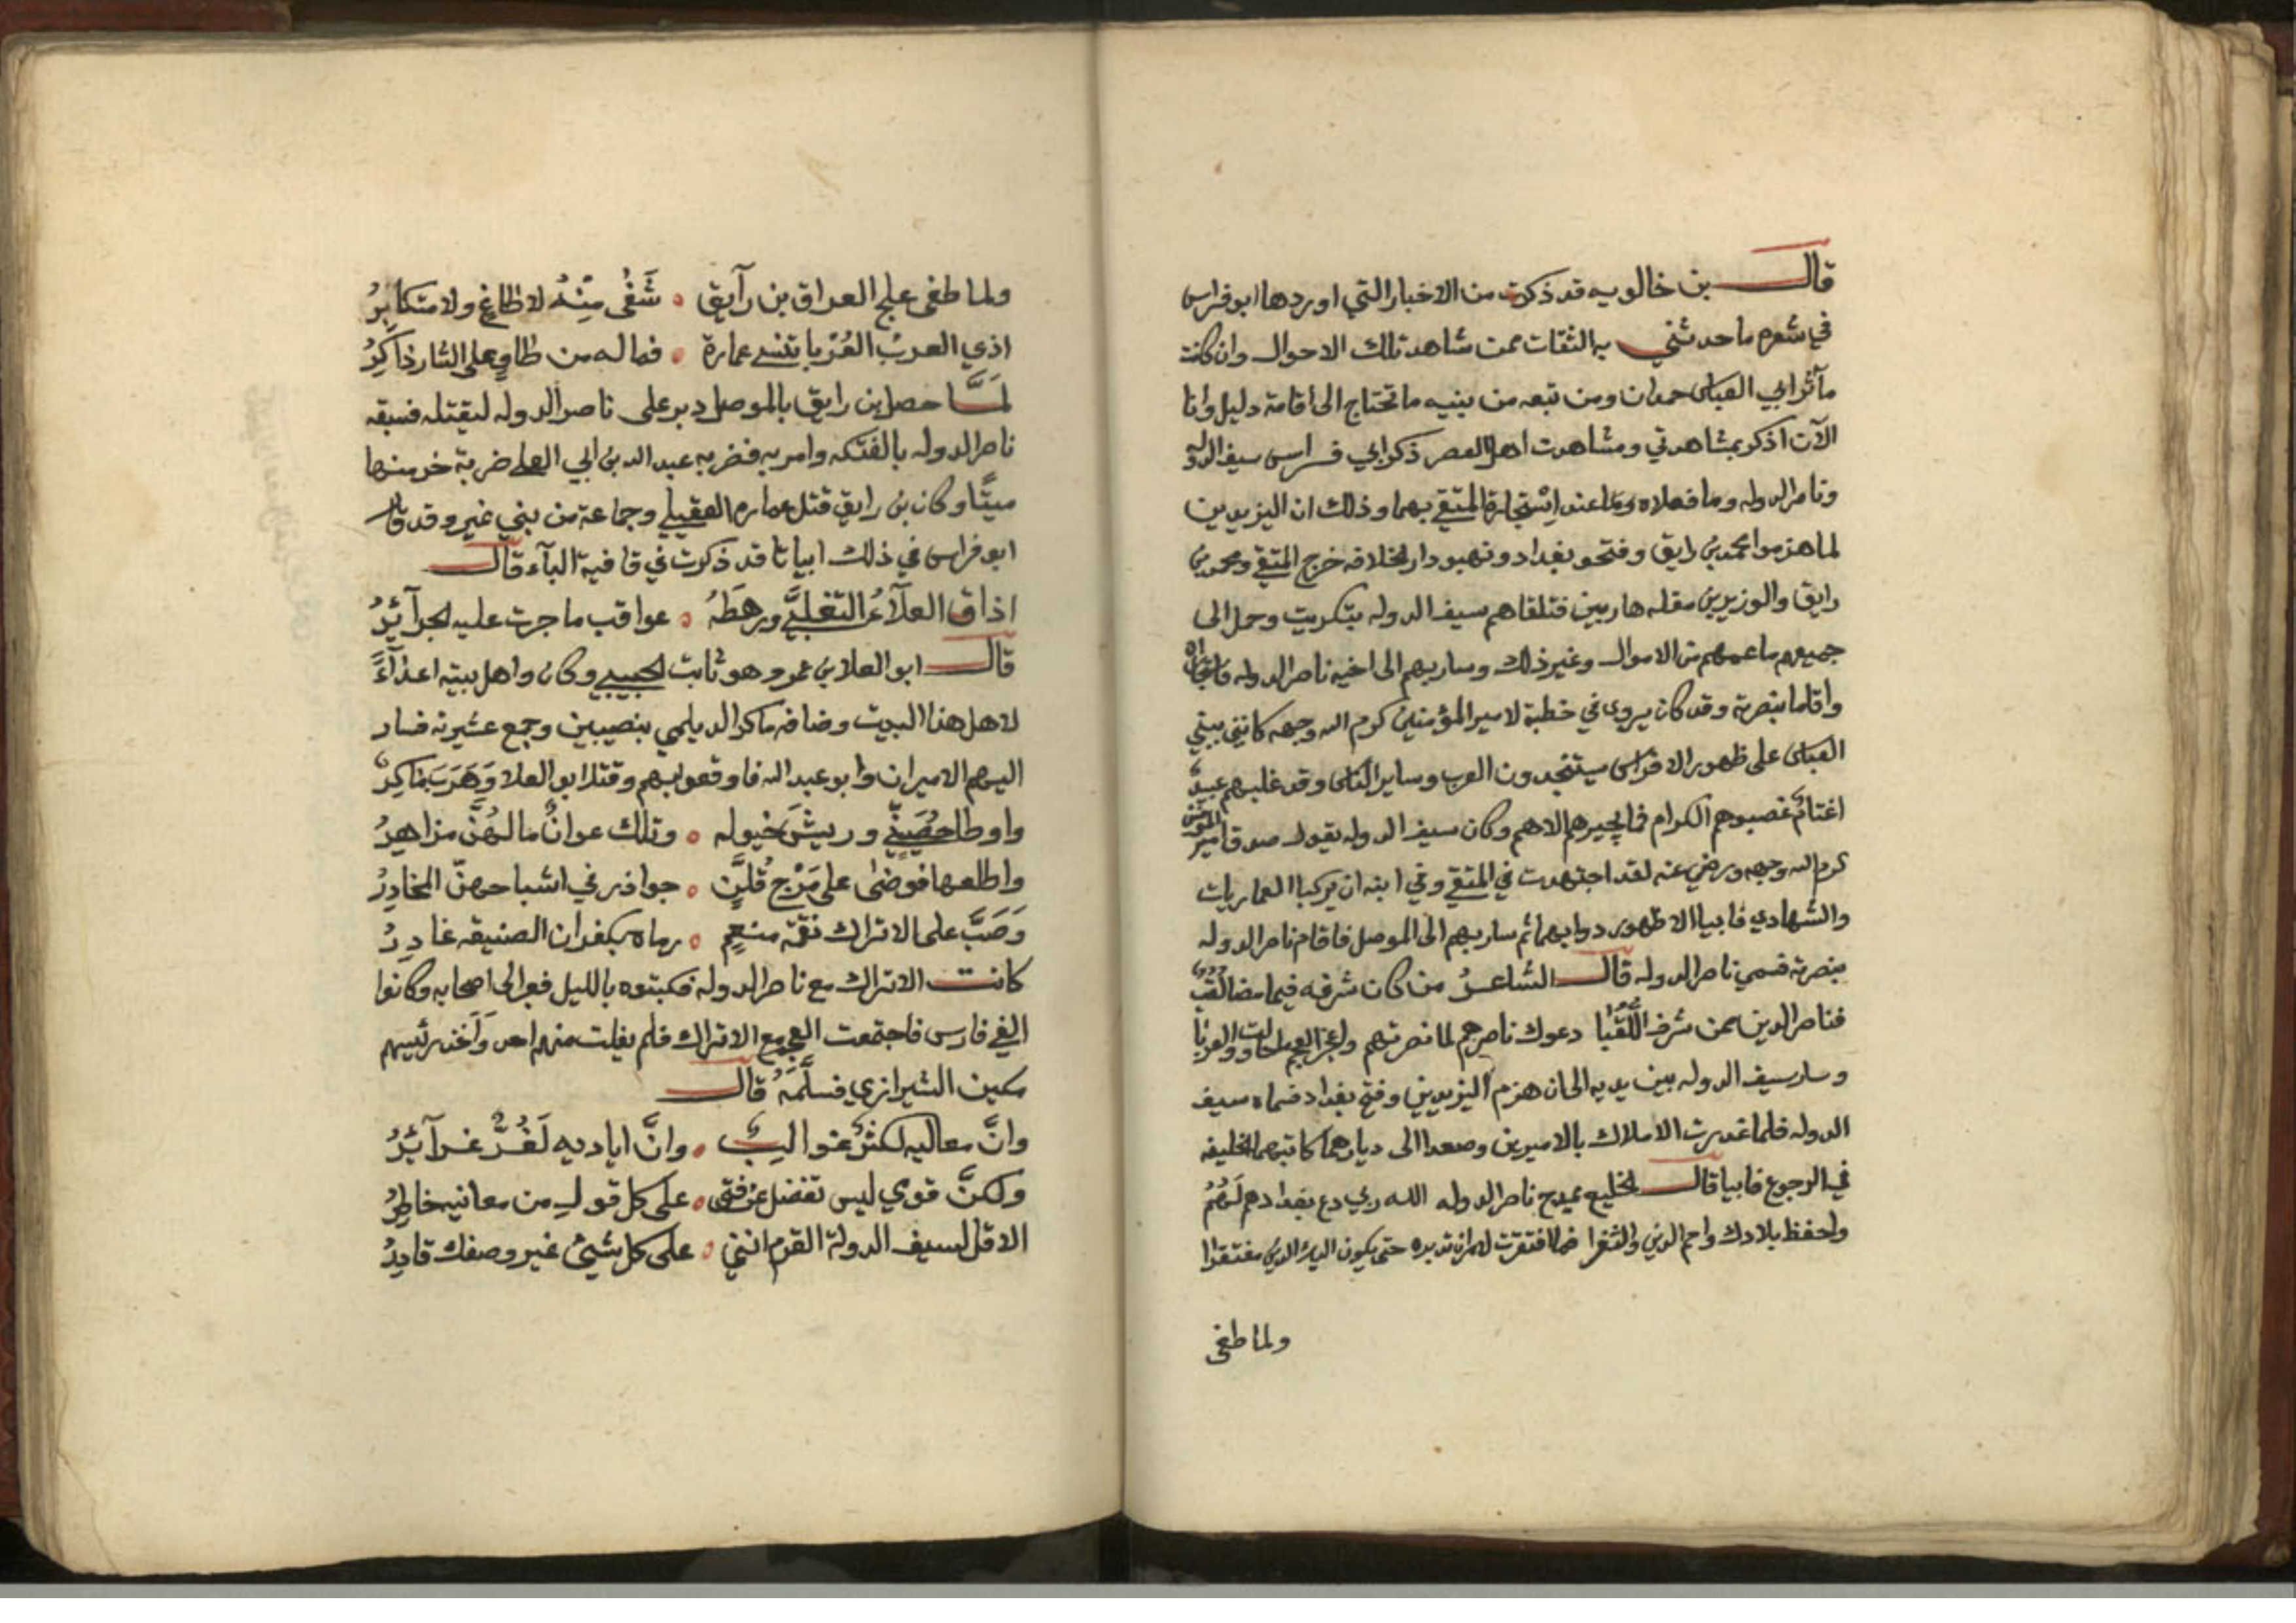 قال بن خالويه قد ذكرت من الاخبار التي اوردها ابو فراس
في شعره ما حدثني به الثقات ممن شاهد تلك الاحوال وان كانت
مآثر ابي العباس حمدان ومن تبعه من بنيه ما تحتاج الى اقامة دليل وانا
الآن اذكر بمشاهدتي ومشاهدت اهل العصر ذكر ابي فراس سيف الدولة
وناصر الدوله وما فعلاه عند استجارة المتقي بهما وذلك ان اليزيديين
لما هزموا محمد بن رايق وفتحو بغداد ونهبو دار الخلافه خرج المتقي ومحمد بن
رايق والوزير بن مقله هاربين فتلقاهم سيف الدوله بتكريت وحمل الى
جميعهم ما عمهم من الاموال وغير ذلك وسار بهم الى اخيه ناصر الدوله
واقاما بنصرته وقد كان يروى في خطبة لامير المؤمنين كرم الله وجهه كانني ببني
العباس على ظهور الافراس يستنجدون العرب وساير الناس وقد غلبهم عبيد
اغتام غصبوهم الكرام فما يجيرهم الا هم وكان سيف الدوله يقول صدق امير المؤمنين
كرم الله وجهه ورضي عنه لقد اجتهدت في المتقي وفي ابنه ان يركبا العماريات
والشهادي فابيا الا ظهور دوابهما ثم سار بهم الى الموصل فاقام ناصر الدوله
بنصرته فسمي ناصر الدوله قال الشاعر من كان شرفه فيما مضا لقب
فناصر الدين ممن شرف اللقبا دعوك ناصرهم لما نصرتهم
وسار سيف الدوله بين يديه الى ان هزم اليزيديين وفتح بغداد فسماه سيف
الدوله فلما غدرت الاملاك بالاميرين وصعدا الى ديارهما كاتبهما الخليفه
في الرجوع فابيا قال الخليع يمدح ناصر الدوله الله ربي دع بغدادهم لهم
واحفظ بلادك واحم الدين والثغرا فما افتقرت لامر انت تدبره حتى يكون اليك الدين مفتقرا
ولما طغى
ولما طغى علج العراق بن رآيق ٥ شفى منه لا طاغ ولا متكابر
اذي العرب العر با تنسى عمارة ٥ فماله من طاو على الثار ذاكر
لما حصل بن رايق بالموصل دبر على ناصر الدوله ليقتله فسبقه
ناصر الدوله بالفتكه وامر به فضربه عبد الله بن ابي العلى ضربة خر منها
ميتا وكان بن رايق قتل عماره العقيلي وجماعة من بني نمير وقد قال
ابو فراس في ذلك ابياتا قد ذكرت في قافية البآء قال
اذاق العلآء التغلبي ورهطه ٥ عواقب ما جرت عليه الجرآئر
قال ابو العلا بن عمرو هو ثابت الحبيبي وكان واهل بيته اعدآء
لاهل هذا البيت وضافه ماكر الديلمي بنصيبين وجمع عشيرته فسار
اليهم الاميران وابو عبد الله فاوقعو بهم وقتلا ابو العلا وهرب ماكر
واوطا حصيني وريش خيوله ٥ وتلك عوان ما لهن مزاهر
واطلعها فوضى على مرج قلين ٥ جواذر في اشباحهن المخادر
وصب على الاتراك نقمة منعم ٥ رماه بكفران الصنيعه غادر
كانت الاتراك مع ناصر الدوله فكبتوه بالليل فعبر الى اصحابه وكانوا
الفي فارس فاجتمعت العجم مع الاتراك فلم يفلت منهم احد واخذ رئيسهم
سكين الشيرازي فسلمه قال
وان معاليه لكثر غوالب ٥ وان اياديه لغر غرآئر
ولكن قولي ليس تفضل عن فتى ٥ على كل قول من معانيه خاطر
الا قل لسيف الدولة القرم انني ٥ على كل شيئ غير وصفك قادر